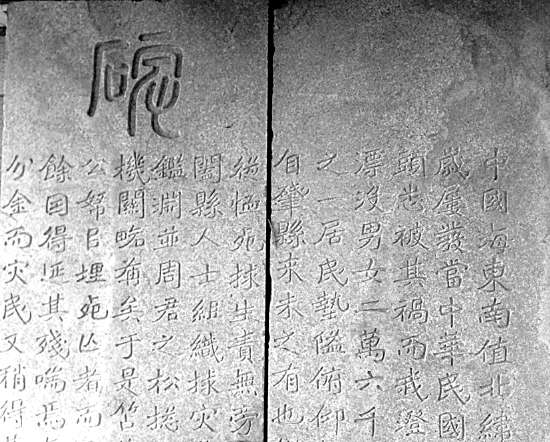 中國海東南值北緯
歲屢發當中華民國
頭悉被其禍而我澄
漂没男女二萬六千
之一居民墊隘俯仰
自肇縣來未之有也
後恤死捄生責無旁
闔縣人士組織捄灾
鑑淵並周君之松
機關略備矣于是
公帑㠯埋死亾者而
餘因得延其殘喘焉
分金而灾民又稍得